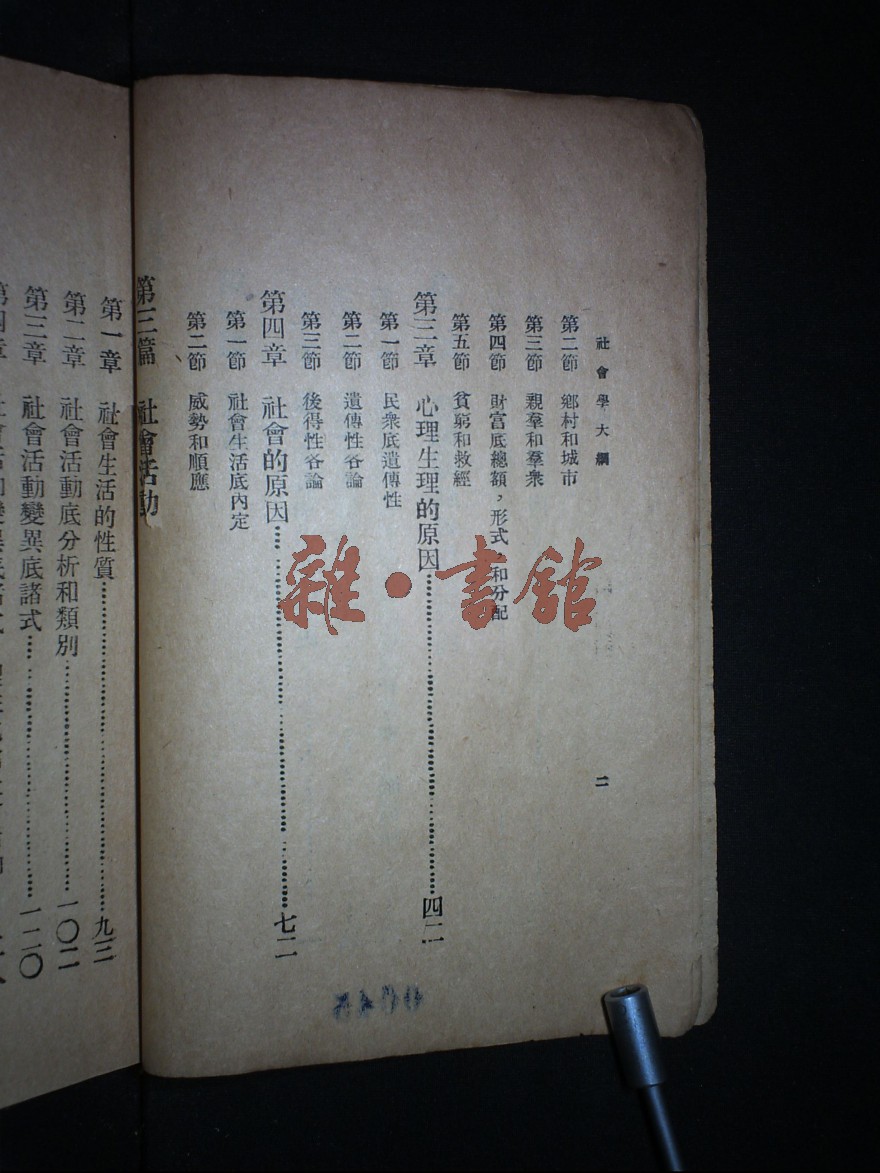 社會學大綱
二
第二節 鄉村和城市
第三節 親羣和羣衆
第四節 財富底總額，形式，和分配
第五節 貧窮和救經
第三章 心理生理的原因……四二
第一節 民衆底遺傳性
第二節 遺傳性各論
第三節 後得性各論
第四章 社會的原因……七二
第一節 社會生活底内定
第二節 威勢和順應
第三篇 社會活動
第一章 社會生活的性質……九三
第二章 社會活動底分析和類別……一〇二
第三章 社會活動變異底諸式……一二〇
雜·書館